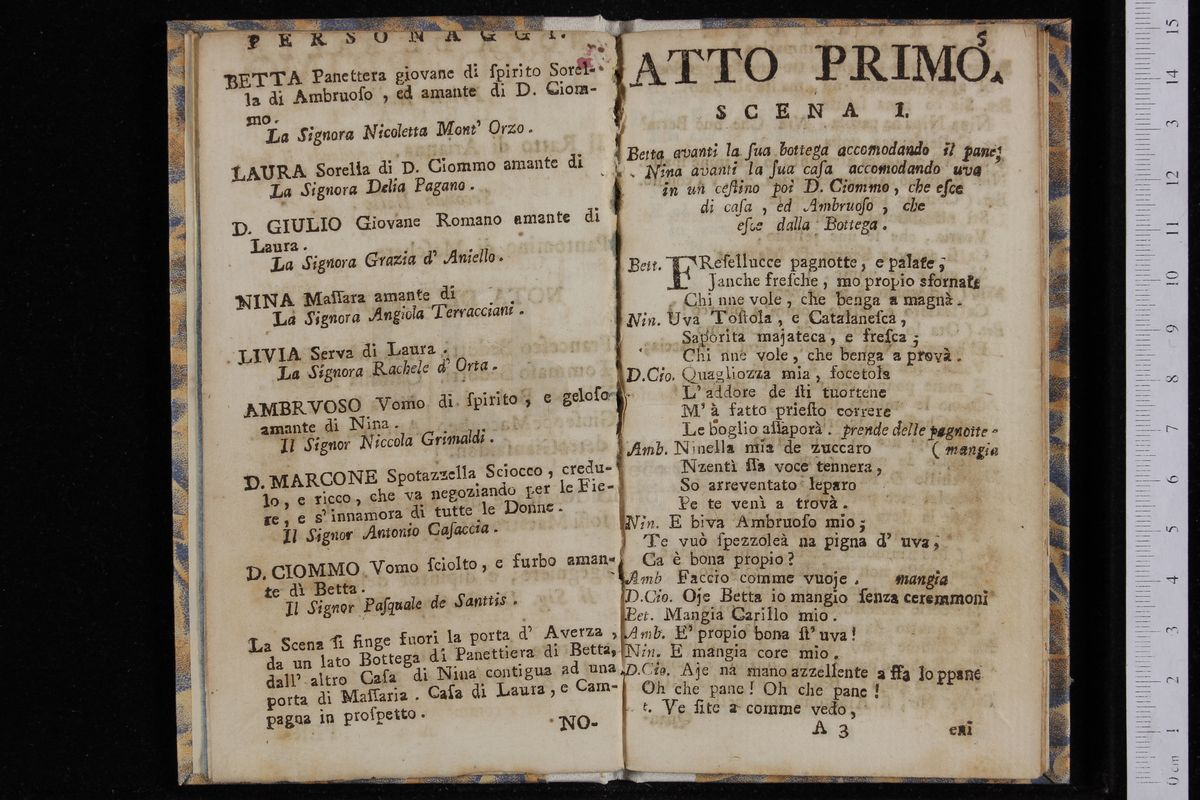 PERSONAGGI.
BETTA Panettera giovane di ſpirito Sorel-
la di Ambruoſo , ed amante di D. Ciom-
mo.
La Signora Nicoletta Mont' Orzo .
LAURA Sorella di D. Ciommo amante di
La Signora Delia Pagano .
D. GIULIO Giovane Romano amante di
Laura .
La Signora Grazia d' Aniello .
NINA Maſſara amante di
La Signora Angiola Terracciani .
LIVIA Serva di Laura .
La Signora Rachele d' Orta .
AMBRVOSO Vomo di ſpirito , e geloſo
amante di Nina .
Il Signor Niccola Grimaldi .
D. MARCONE Spotazzella Sciocco , credu-
lo , e ricco , che va negoziando per le Fie-
re , e s' innamora di tutte le Donne .
Il Signor Antonio Caſaccia .
D. CIOMMO Vomo ſciolto , e furbo aman-
te di Betta .
Il Signor Paſquale de Santtis .
La Scena ſi finge fuori la porta d' Averza ,
da un lato Bottega di Panettiera di Betta,
dall' altro Caſa di Nina contigua ad una
porta di Maſſaria . Caſa di Laura , e Cam-
pagna in proſpetto .
NO-
5
ATTO PRIMO.
SCENA I.
Betta avanti la ſua bottega accomodando il pane;
Nina avanti la ſua caſa accomodando uva
in un ceſtino poi D. Ciommo , che eſce
di caſa , ed Ambruoſo , che
eſce dalla Bottega .
Bett. FReſellucce pagnotte , e palate ;
Janche freſche , mo propio sfornate
Chi nne vole , che benga a magnà .
Nin. Uva Toſtola , e Catalaneſca ,
Saporita majateca , e freſca ;
Chi nne vole , che benga a provà .
D.Cio. Quagliozza mia , focetola
L' addore de ſti tuortene
M' à fatto prieſto correre
Le boglio aſſaporà . prende delle pagnotte
Amb. Ninella mia de zuccaro ( mangia
Nzentì ſſa voce tennera ,
So arreventato leparo
Pe te venì a trovà .
Nin. E biva Ambruoſo mio ;
Te vuò ſpezzoleà na pigna d' uva ,
Ca è bona propio ?
Amb Faccio comme vuoje . mangia
D.Cio. Oje Betta io mangio ſenza ceremmoni
Bet. Mangia Carillo mio .
Amb. E' propio bona ſt' uva !
Nin. E mangia core mio .
D.Cio. Aje na mano azzellente a ffa lo ppane
Oh che pane ! Oh che pane !
t. Ve ſite a comme vedo ,
A 3 eni
0 cm 1 2 3 4 5 6 7 8 9 10 11 12 3 14 15